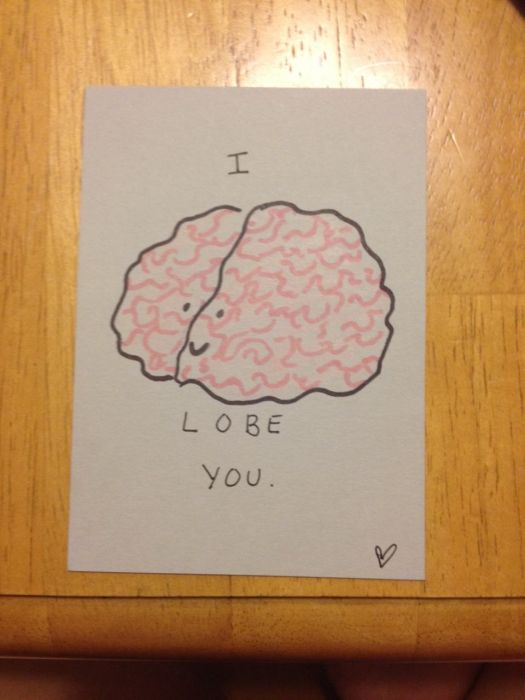 I
LOBE
YOU.